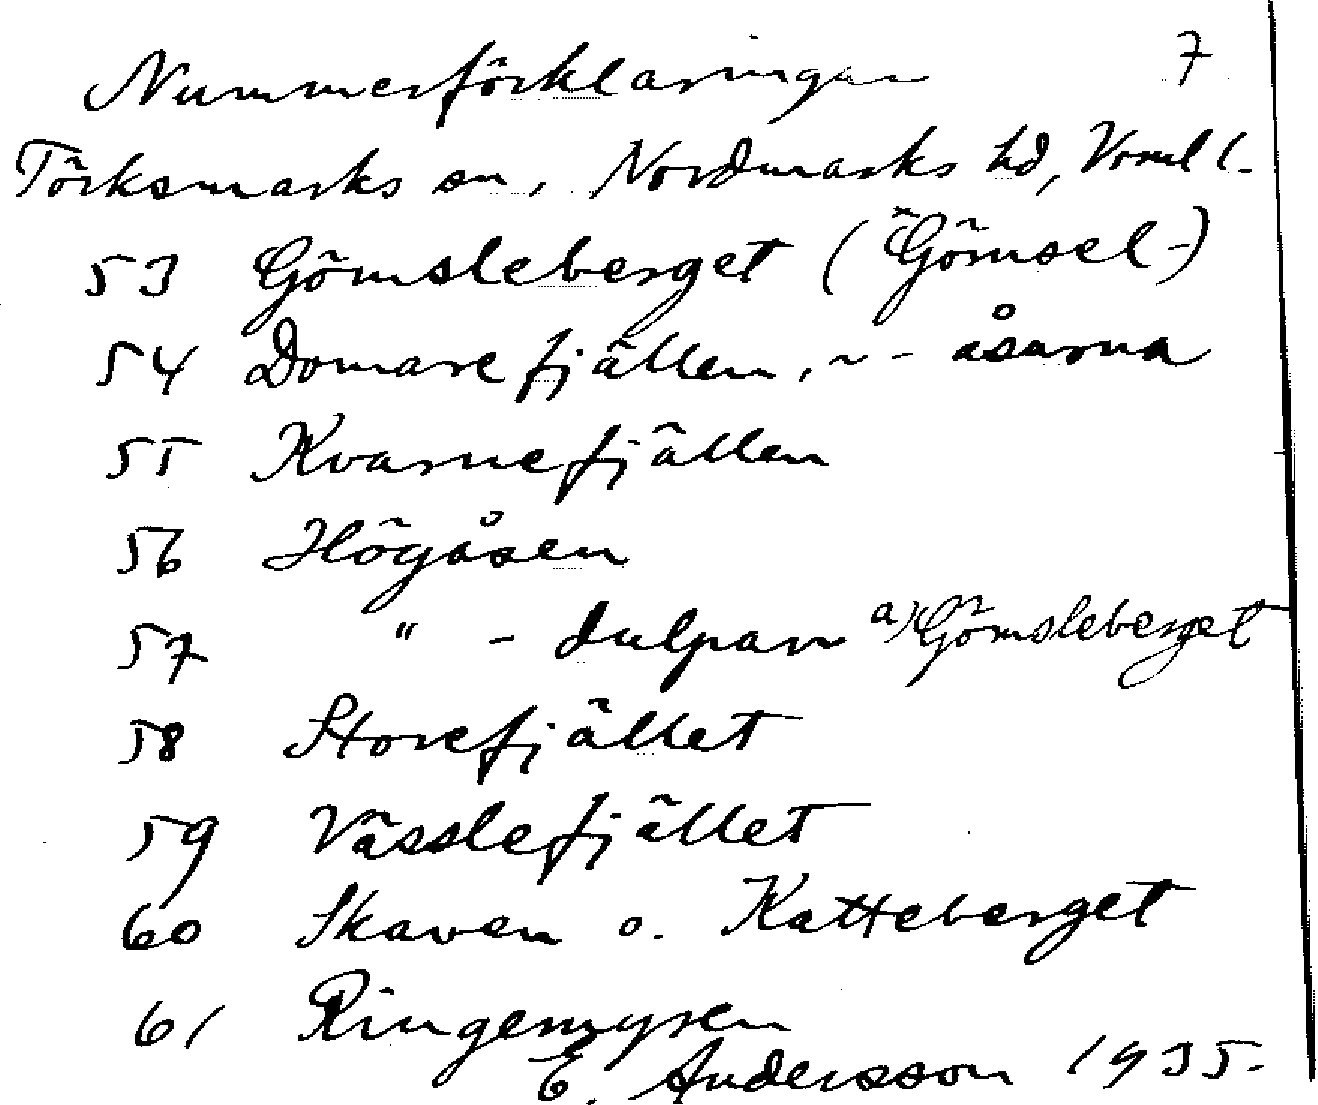 Nummerförklaringar 7
Törksmarks sn, Nordmarks hd, Vrml.
53 Gömsleberget (Gömsel-)
54 Domarefjällen, ~ - åsarna
55 Kvarnefjällen
56 Högåsen
57 " - dulpan a) Gömsleberget
58 Storefjället
59 Vässlefjället
60 Skaven o. Katteberget
61 Ringemyren
E. Andersson 1935.